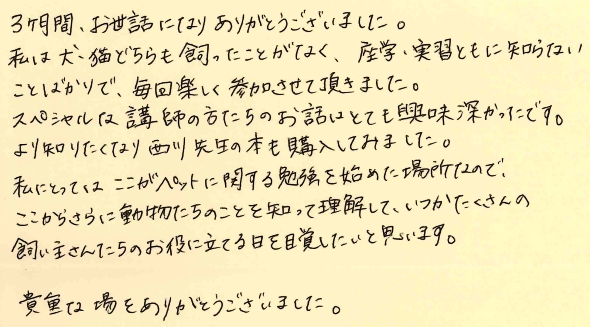 3ヶ月間、お世話になりありがとうございました。
私は犬・猫どちらも飼ったことがなく、座学・実習ともに知らない
ことばかりで、毎回楽しく参加させて頂きました。
スペシャルな講師の方たちのお話はとても興味深かったです。
より知りたくなり西川先生の本も購入してみました。
私にとってはここがペットに関する勉強を始めた場所なので、
ここからさらに動物たちのことを知って理解して、いつかたくさんの
飼い主さんたちのお役に立てる日を目覚したいと思います。
貴重な場をありがとうございました。